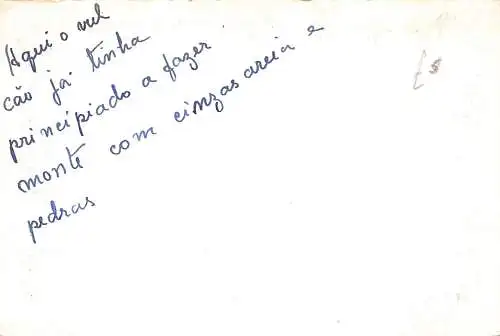 Aqui o vul
cão já tinha
principiado a fazer
monte com cinzas areia e
pedras